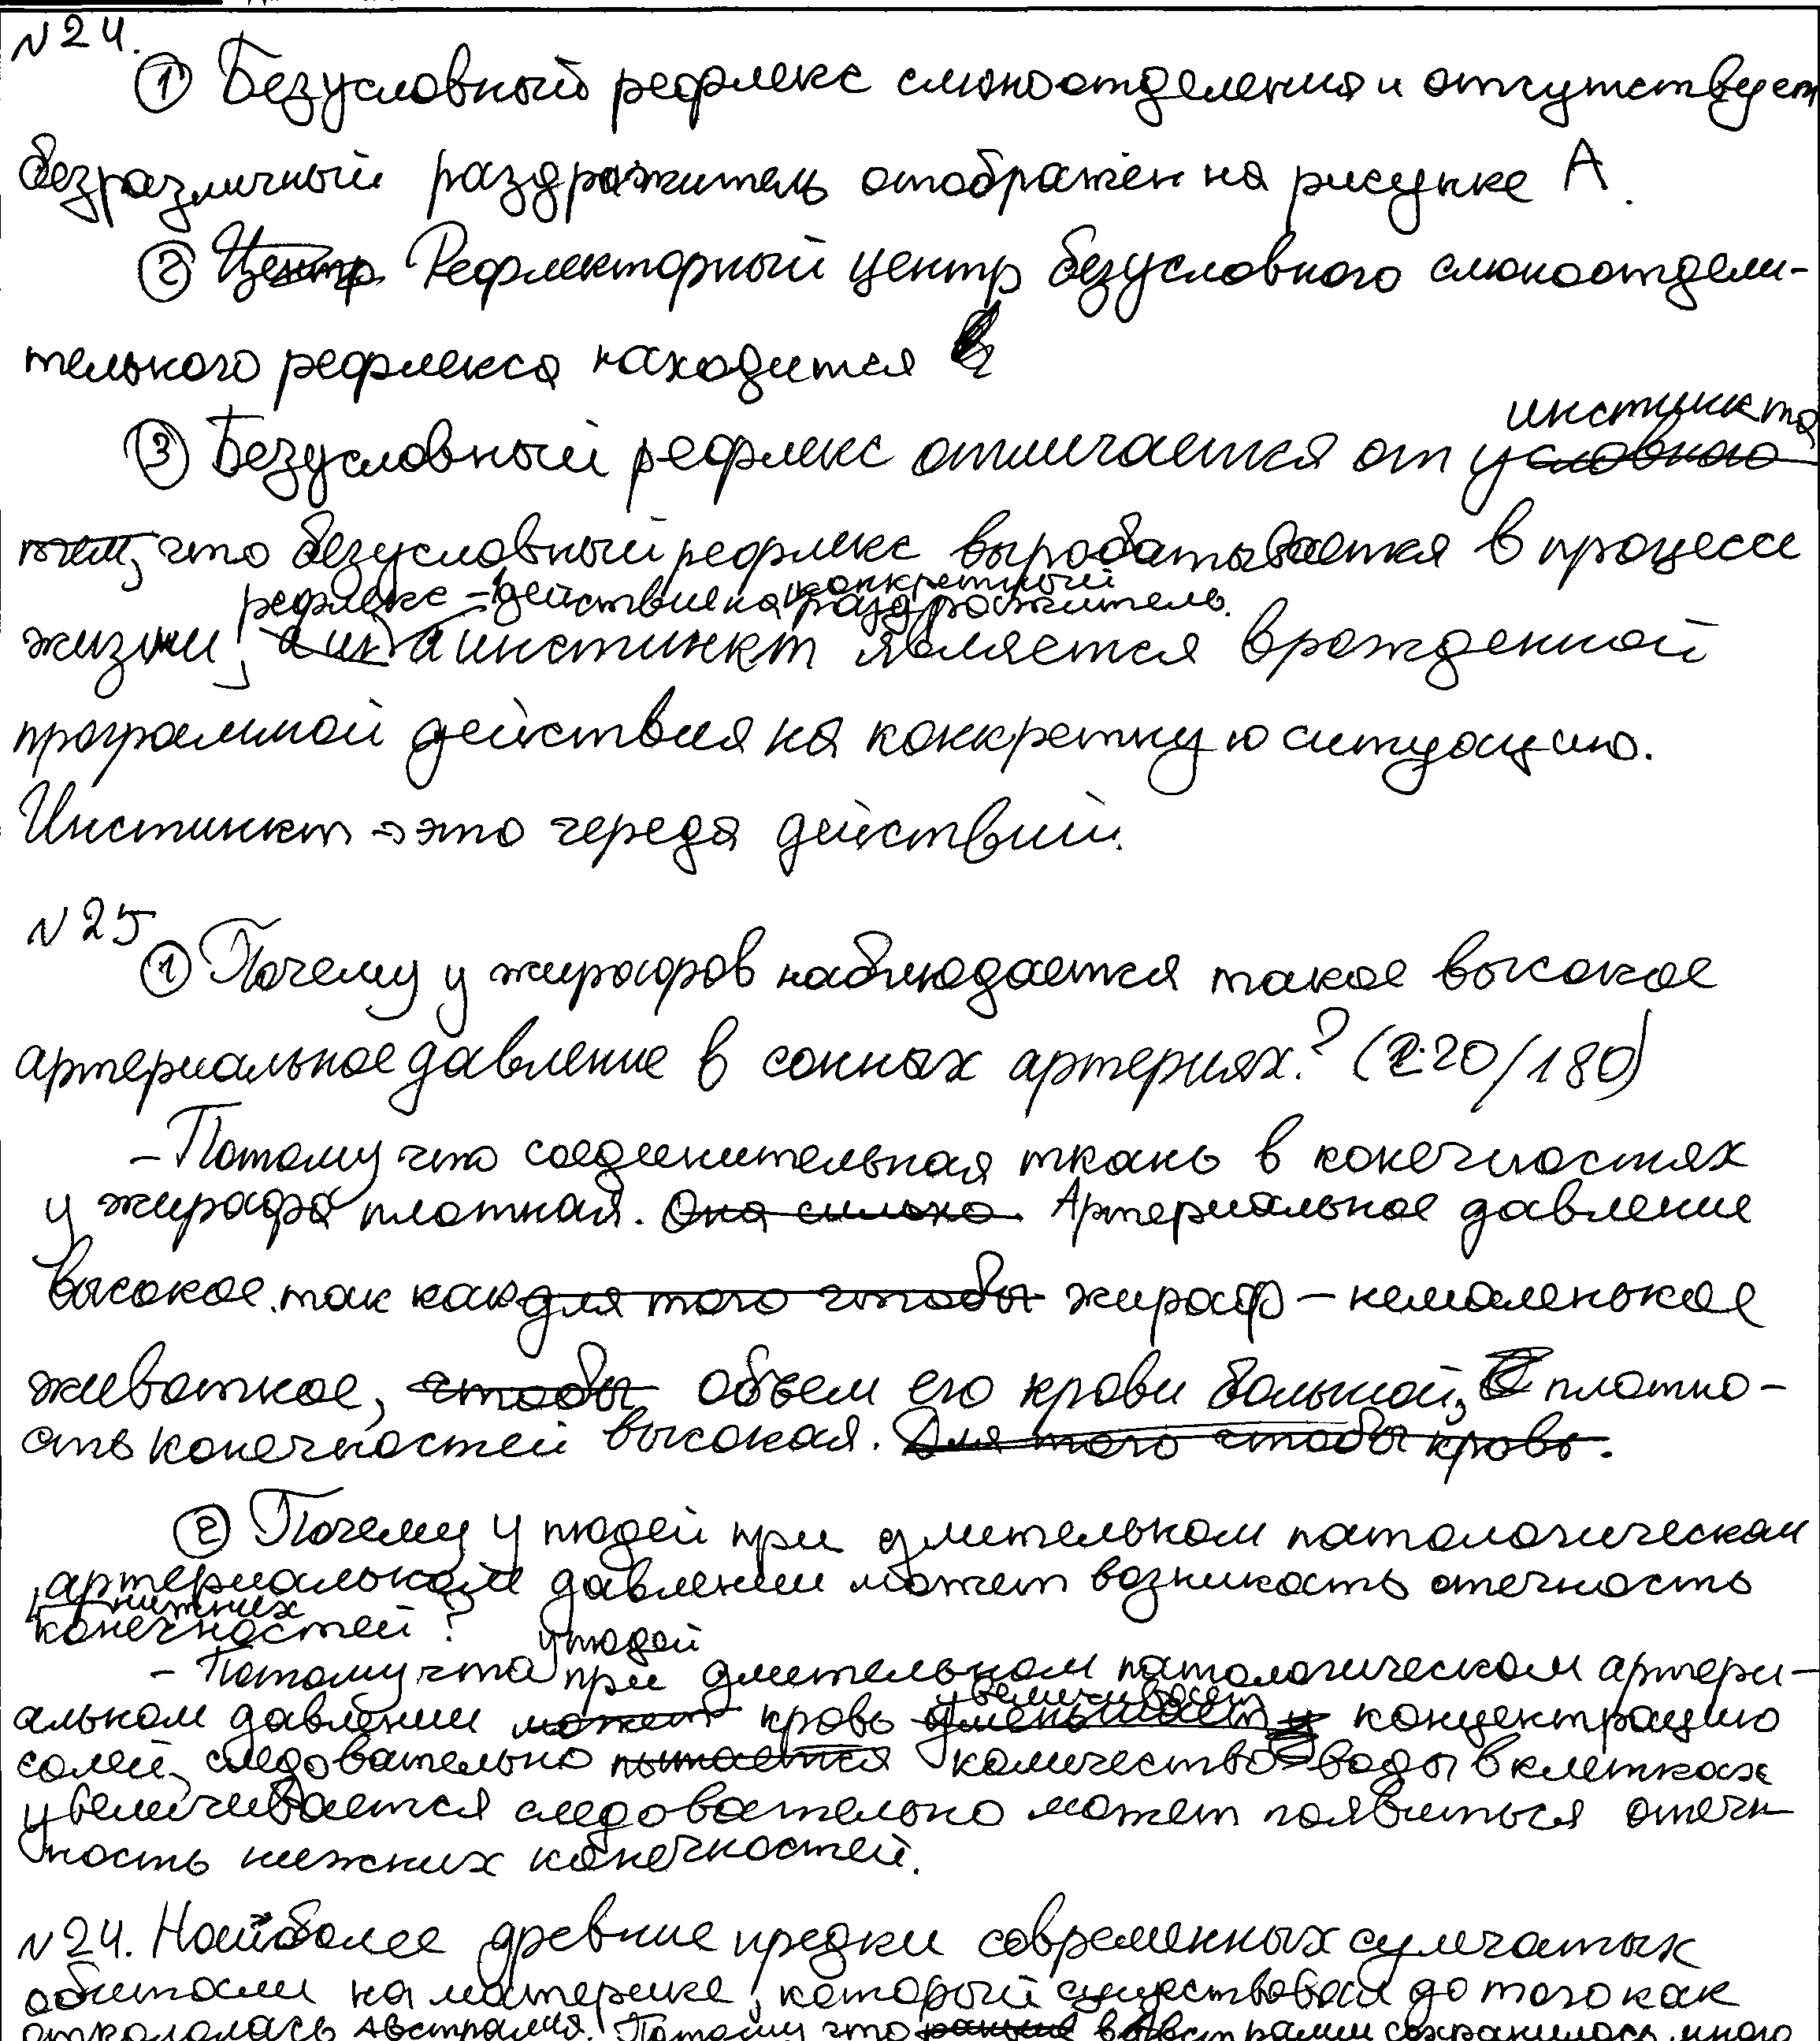 №24.
① Безусловный рефлекс слюноотделения и отсутствует
безразличный раздражитель отображён на рисунке А.
② Центр Рефлекторный центр безусловного слюноотдели-
тельного рефлекса находится
инстинкта
③ Безусловный рефлекс отличается от условного
тем, что безусловный рефлекс вырабатывается в процессе
конкретный
рефлекс - действие на раздражитель.
жизни, а ин а инстинкт является врожденной
программой действия на конкретную ситуацию.
Инстинкт - это череда действий.
№25
① Почему у жирафов наблюдается такое высокое
артериальное давление в сонных артериях? (220/180)
- Потому что соединительная ткань в конечностях
у жирафа плотная. Она сильно. Артериальное давление
высокое, так как для того чтобы жираф - немаленькое
животное, чтобы объем его крови большой, плотно-
сть конечностей высокая. Для того чтобы кровь.
② Почему у людей при длительном патологическом
артериальном давлении может возникать отечность
нижних
конечностей?
у людей
- Потому что при длительном патологическом артери-
увеличивает
альном давлении может кровь уменьшает концентрацию
солей, следовательно пытается количество воды в клетках
увеличивается следовательно может появиться отечн
ность нижних конечностей.
№24. Наиболее древние предки современных сумчатых
обитали на материке, который существовал до того как
откололась Австралия. Потому что раньше в Австралии сохранилось много